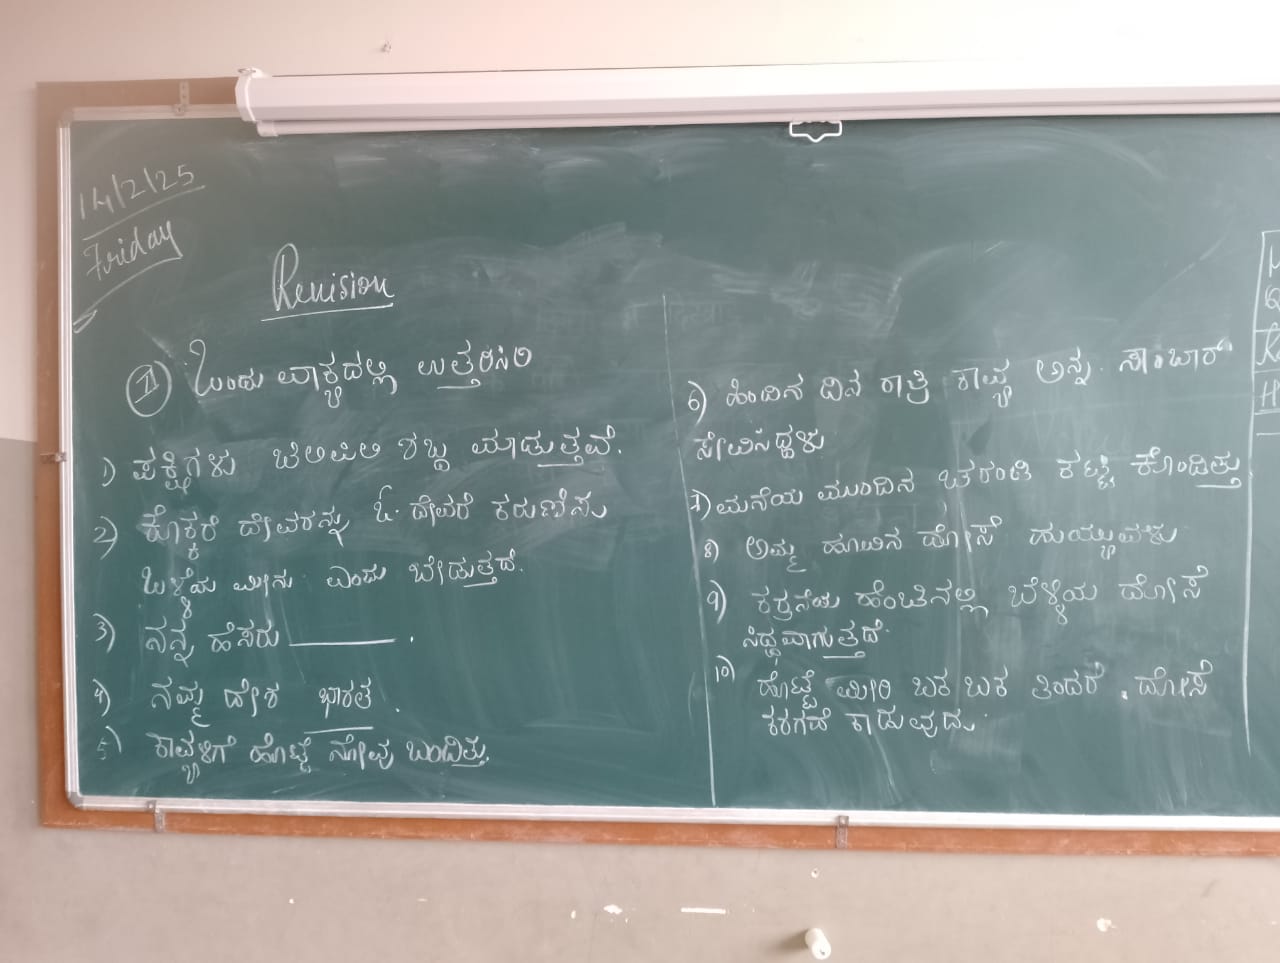 14/2/25
Friday
Revision
I) ಒಂದು ವಾಕ್ಯದಲ್ಲಿ ಉತ್ತರಿಸಿರಿ
1) ಪಕ್ಷಿಗಳು ಚಿಲಿಪಿಲಿ ಶಬ್ದ ಮಾಡುತ್ತವೆ.
2) ಕೊಕ್ಕರೆ ದೇವರನ್ನು ಓ ದೇವರೆ ಕರುಣಿಸು
ಒಳ್ಳೆಯ ಮೀನು ಎಂದು ಬೇಡುತ್ತದೆ.
3) ನನ್ನ ಹೆಸರು ———.
4) ನಮ್ಮ ದೇಶ ಭಾರತ.
5) ಕಾವ್ಯಳಿಗೆ ಹೊಟ್ಟೆ ನೋವು ಬಂದಿತ್ತು.
6) ಹಿಂದಿನ ದಿನ ರಾತ್ರಿ ಕಾವ್ಯ ಅನ್ನ ಸಾಂಬಾರ್
ಸೇವಿಸಿದ್ದಳು
7) ಮನೆಯ ಮುಂದಿನ ಚರಂಡಿ ಕಟ್ಟಿ ಕೊಂಡಿತ್ತು
8) ಅಮ್ಮ ಹೂವಿನ ದೋಸೆ ಹುಯ್ಯುವಳು
9) ಹೆಂಚಿನಲ್ಲಿ ಬೆಳ್ಳಿಯ ದೋಸೆ
ಸಿದ್ಧವಾಗುತ್ತದೆ
10) ಹೊಟ್ಟೆ ಮೀರಿ ಬಕ ಬಕ ತಿಂದರೆ, ದೋಸೆ
ಕರಗದೆ ಕಾಡುವುದು.